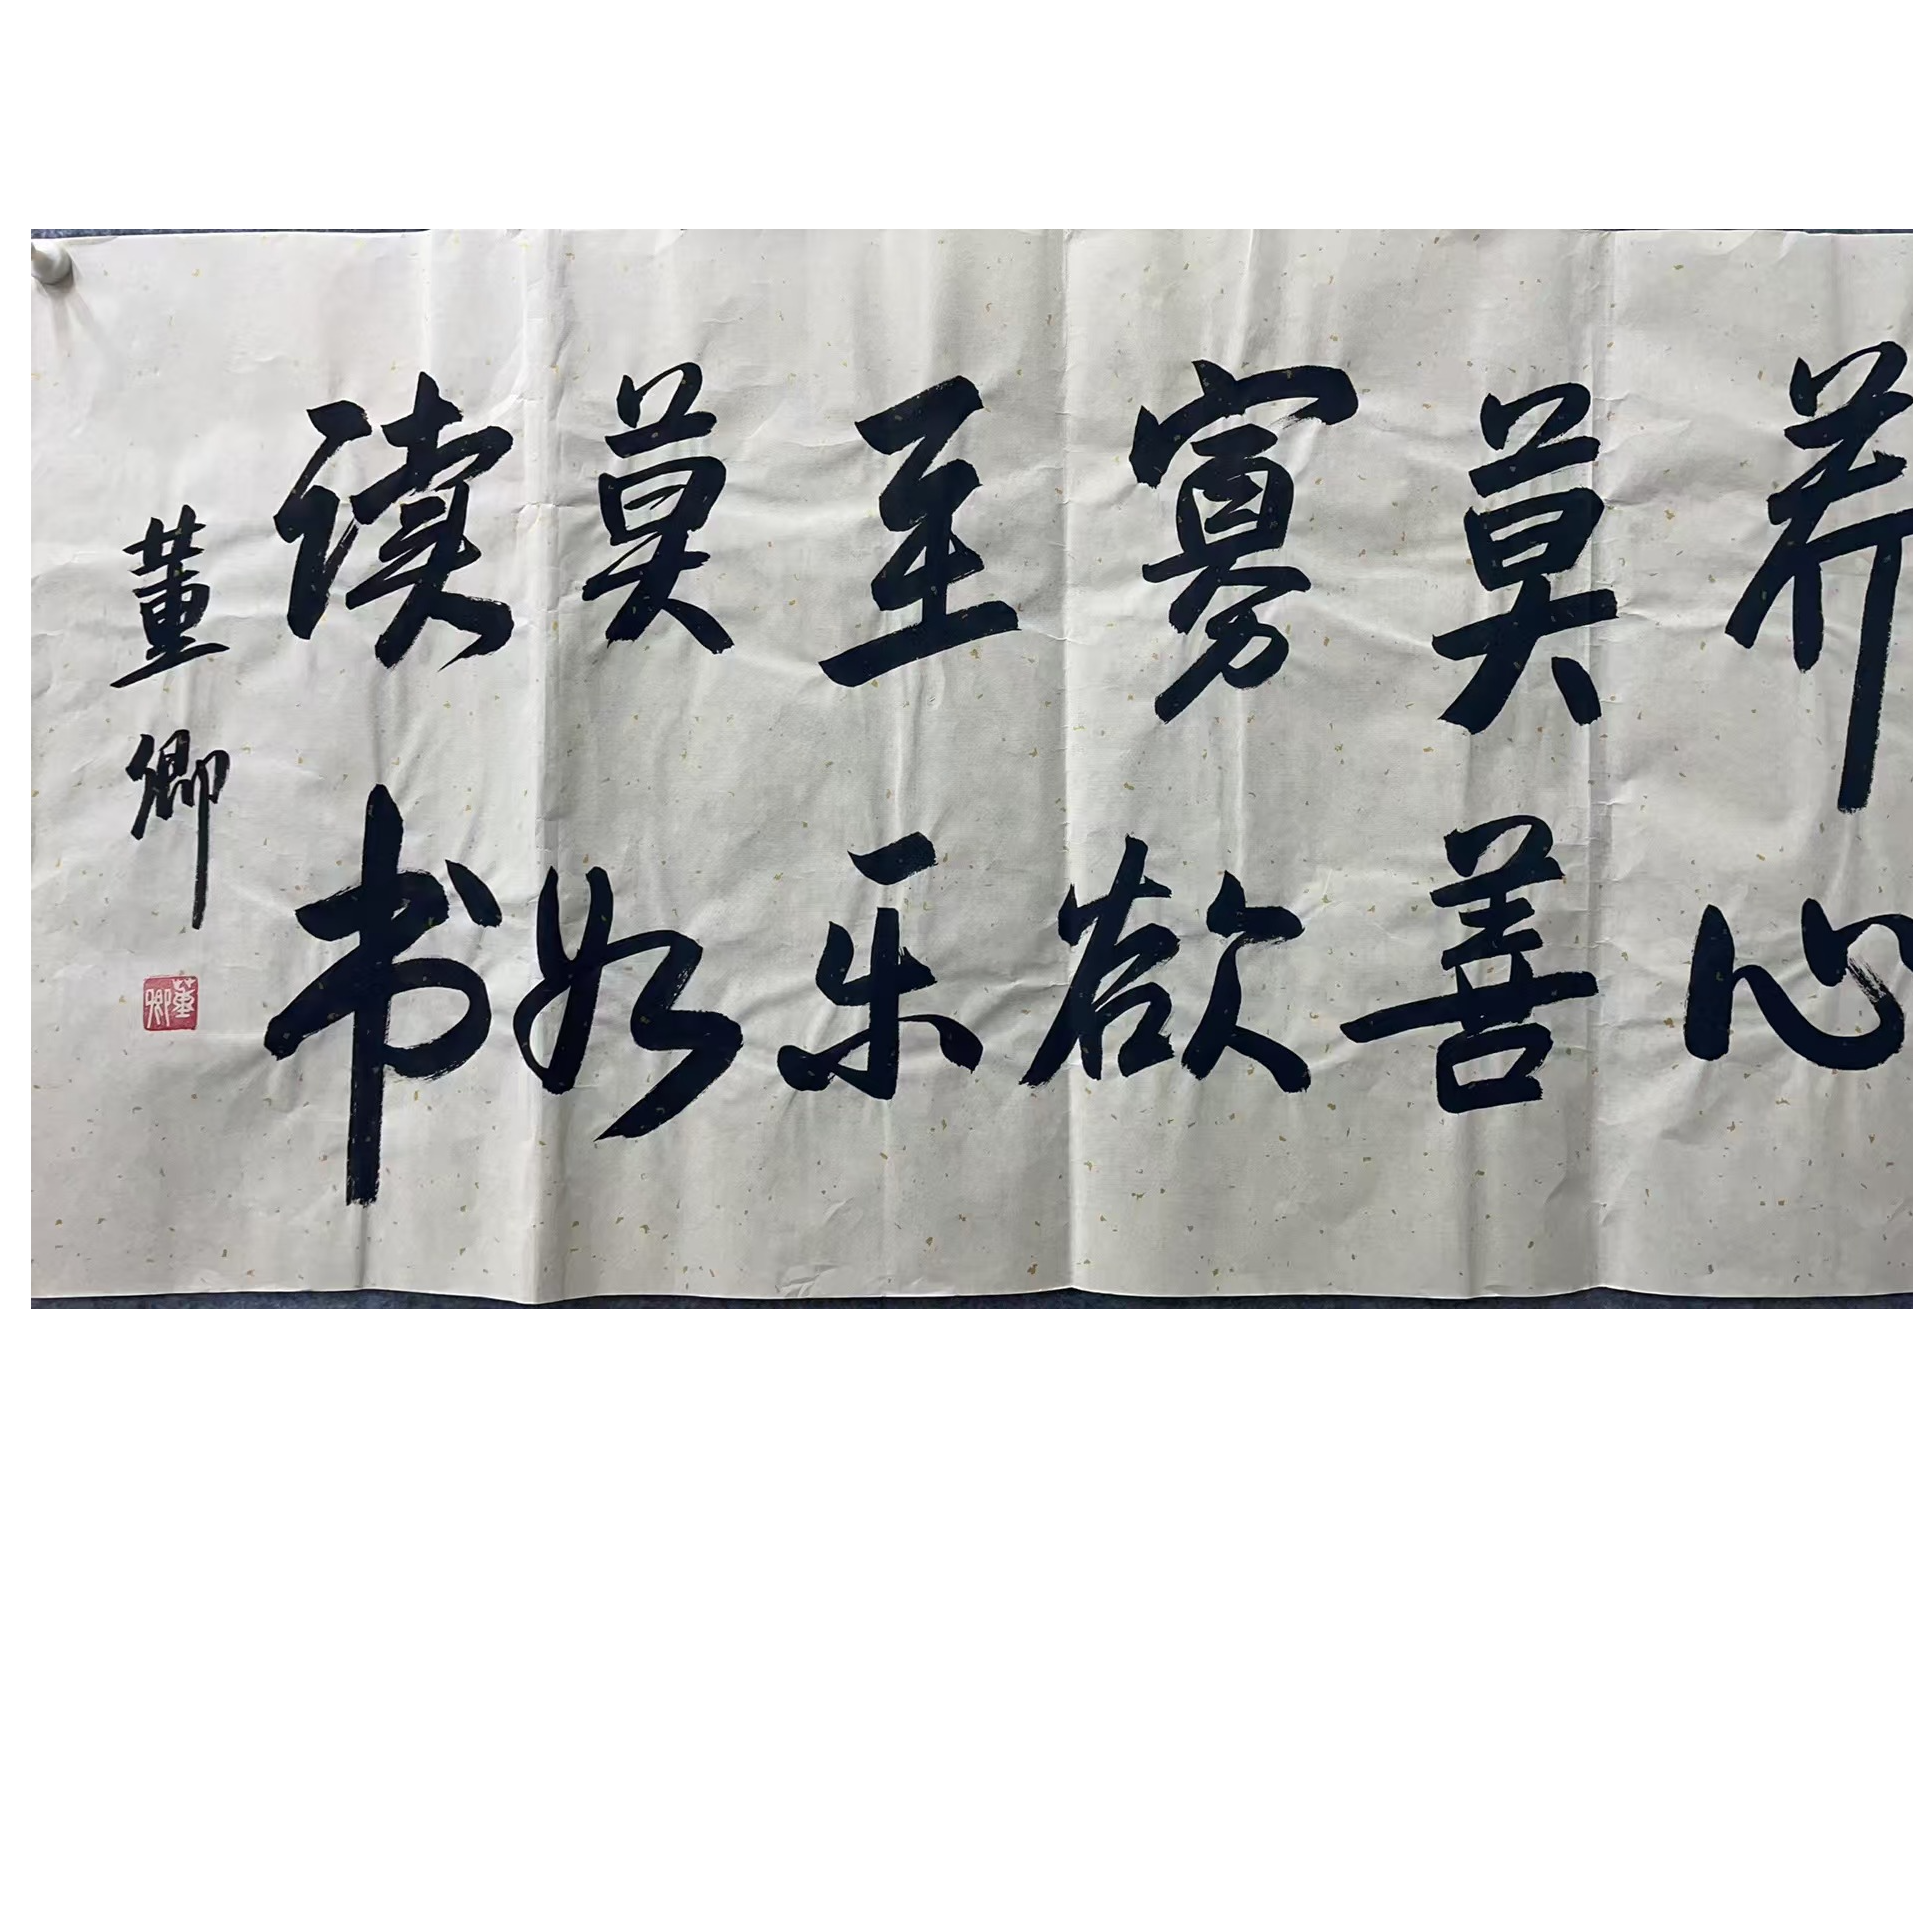 养心
莫善
寡欲
至乐
莫如
读书
董卿
董卿